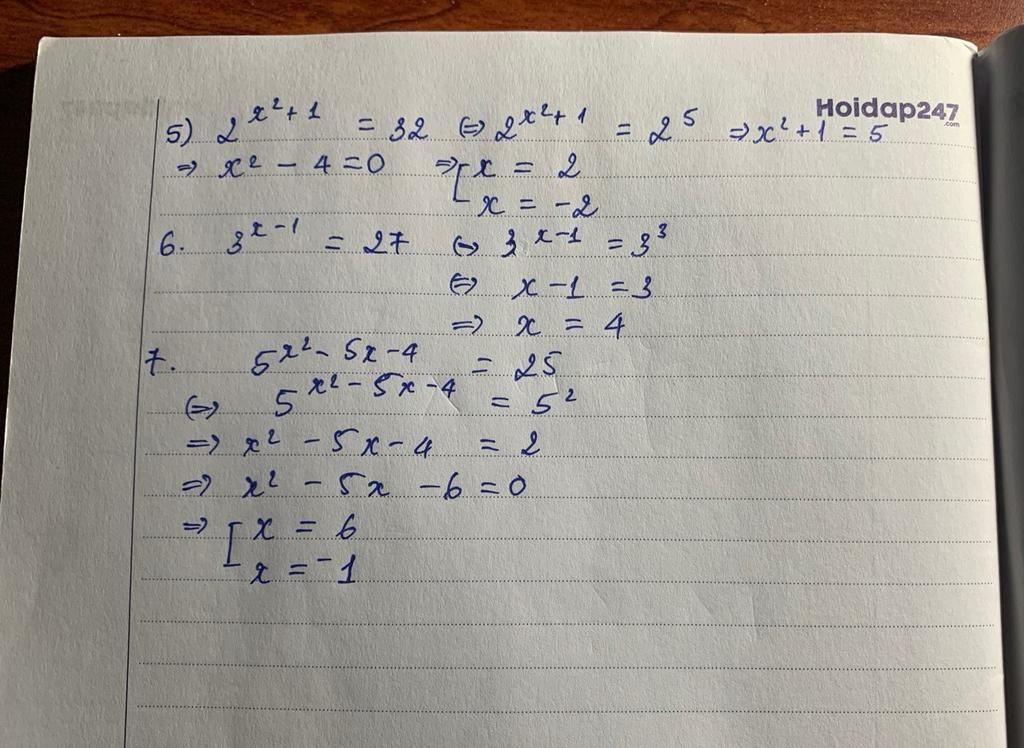 Hoidap247
.com
5) 2^{x²+1} = 32 ⇔ 2^{x²+1} = 2^5 ⇒ x²+1 = 5
⇒ x² - 4 = 0 ⇒ [ x = 2
x = -2
6. 3^{x-1} = 27 ⇔ 3^{x-1} = 3³
⇔ x - 1 = 3
⇒ x = 4
7. 5^{x² - 5x - 4} = 25
⇔ 5^{x² - 5x - 4} = 5²
⇒ x² - 5x - 4 = 2
⇒ x² - 5x - 6 = 0
⇒ [ x = 6
x = -1